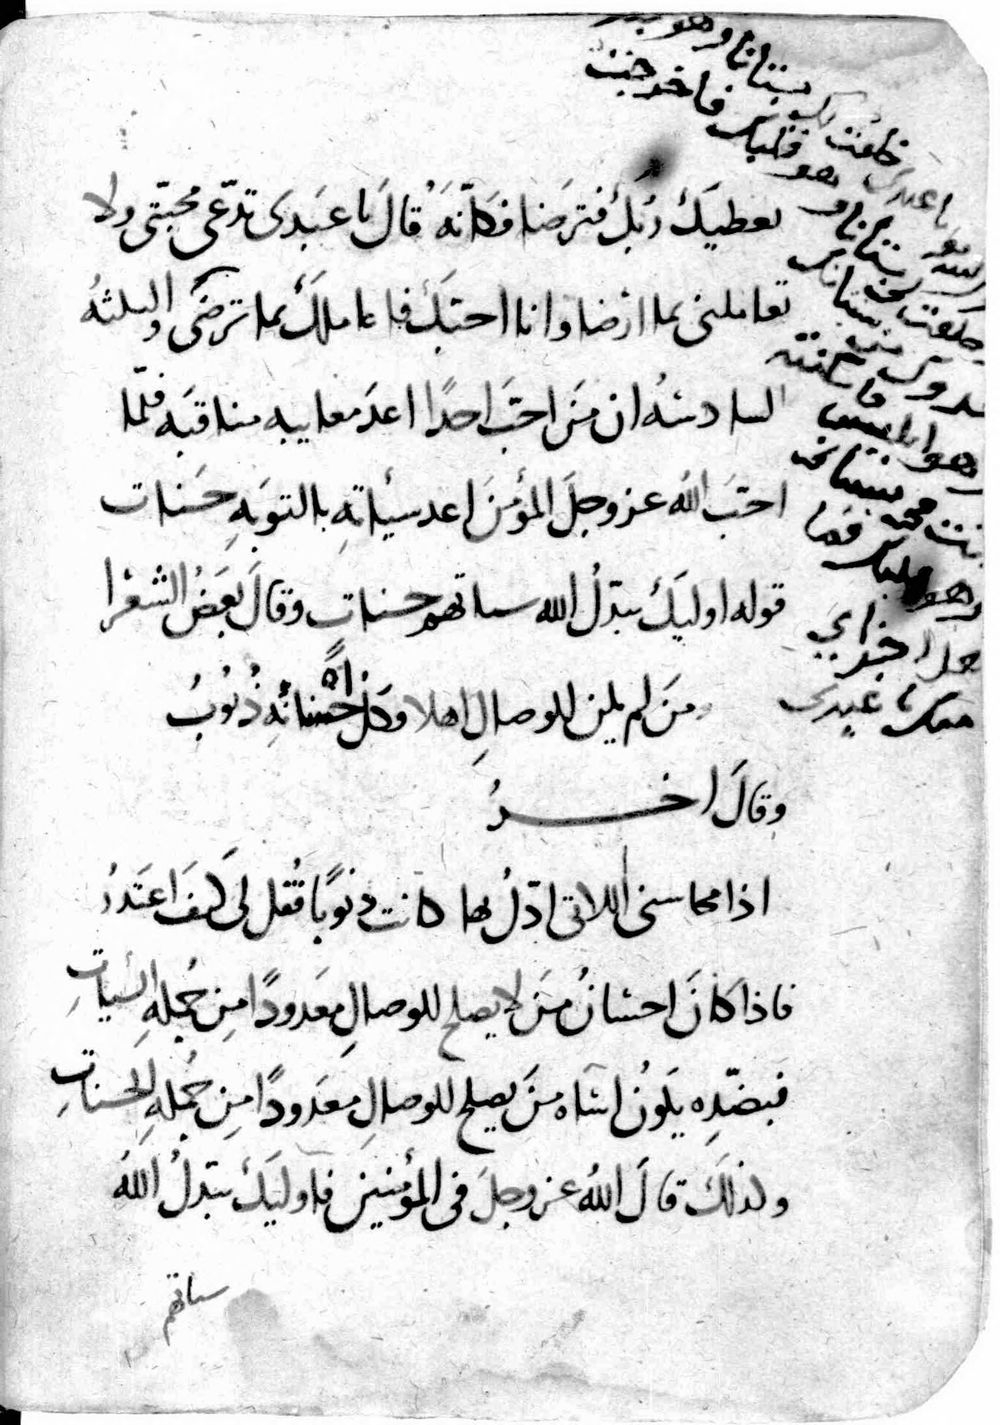 يعطيك ربك فترضا فكانه قال يا عبدى تدعى محبتى ولا
تعاملنى بما ارضا وانا احبك فاعاملك بما ترضى والثلثه
السادسه ان من احب احدا اعد معايبه مناقبه فلما
احب الله عز وجل المؤمن اعد سيئاته بالتوبه حسنات
قوله اوليك يبدل الله سياتهم حسنات وقال بعض الشعرا
من لم يكن للوصال اهلا وكل احسانه ذنوب
وقال اخر
اذا محاسنى اللاتى ادل بها كانت ذنوبا فقل لى كيف اعتذر
فاذا كان احسان من لا يصلح للوصال معدودا من جمله السيات
فبضده يكون اساه من يصلح للوصال معدودا من جمله الحسنات
ولذلك قال الله عز وجل فى المؤمنين فاوليك يبدل الله
سياتهم
بستانا وهو
خلقت لك
وهو قلبك فاخرجت
يا عبدى
بستانك
وهو ابليس
وهو قلبك فما
منك يا عبدى